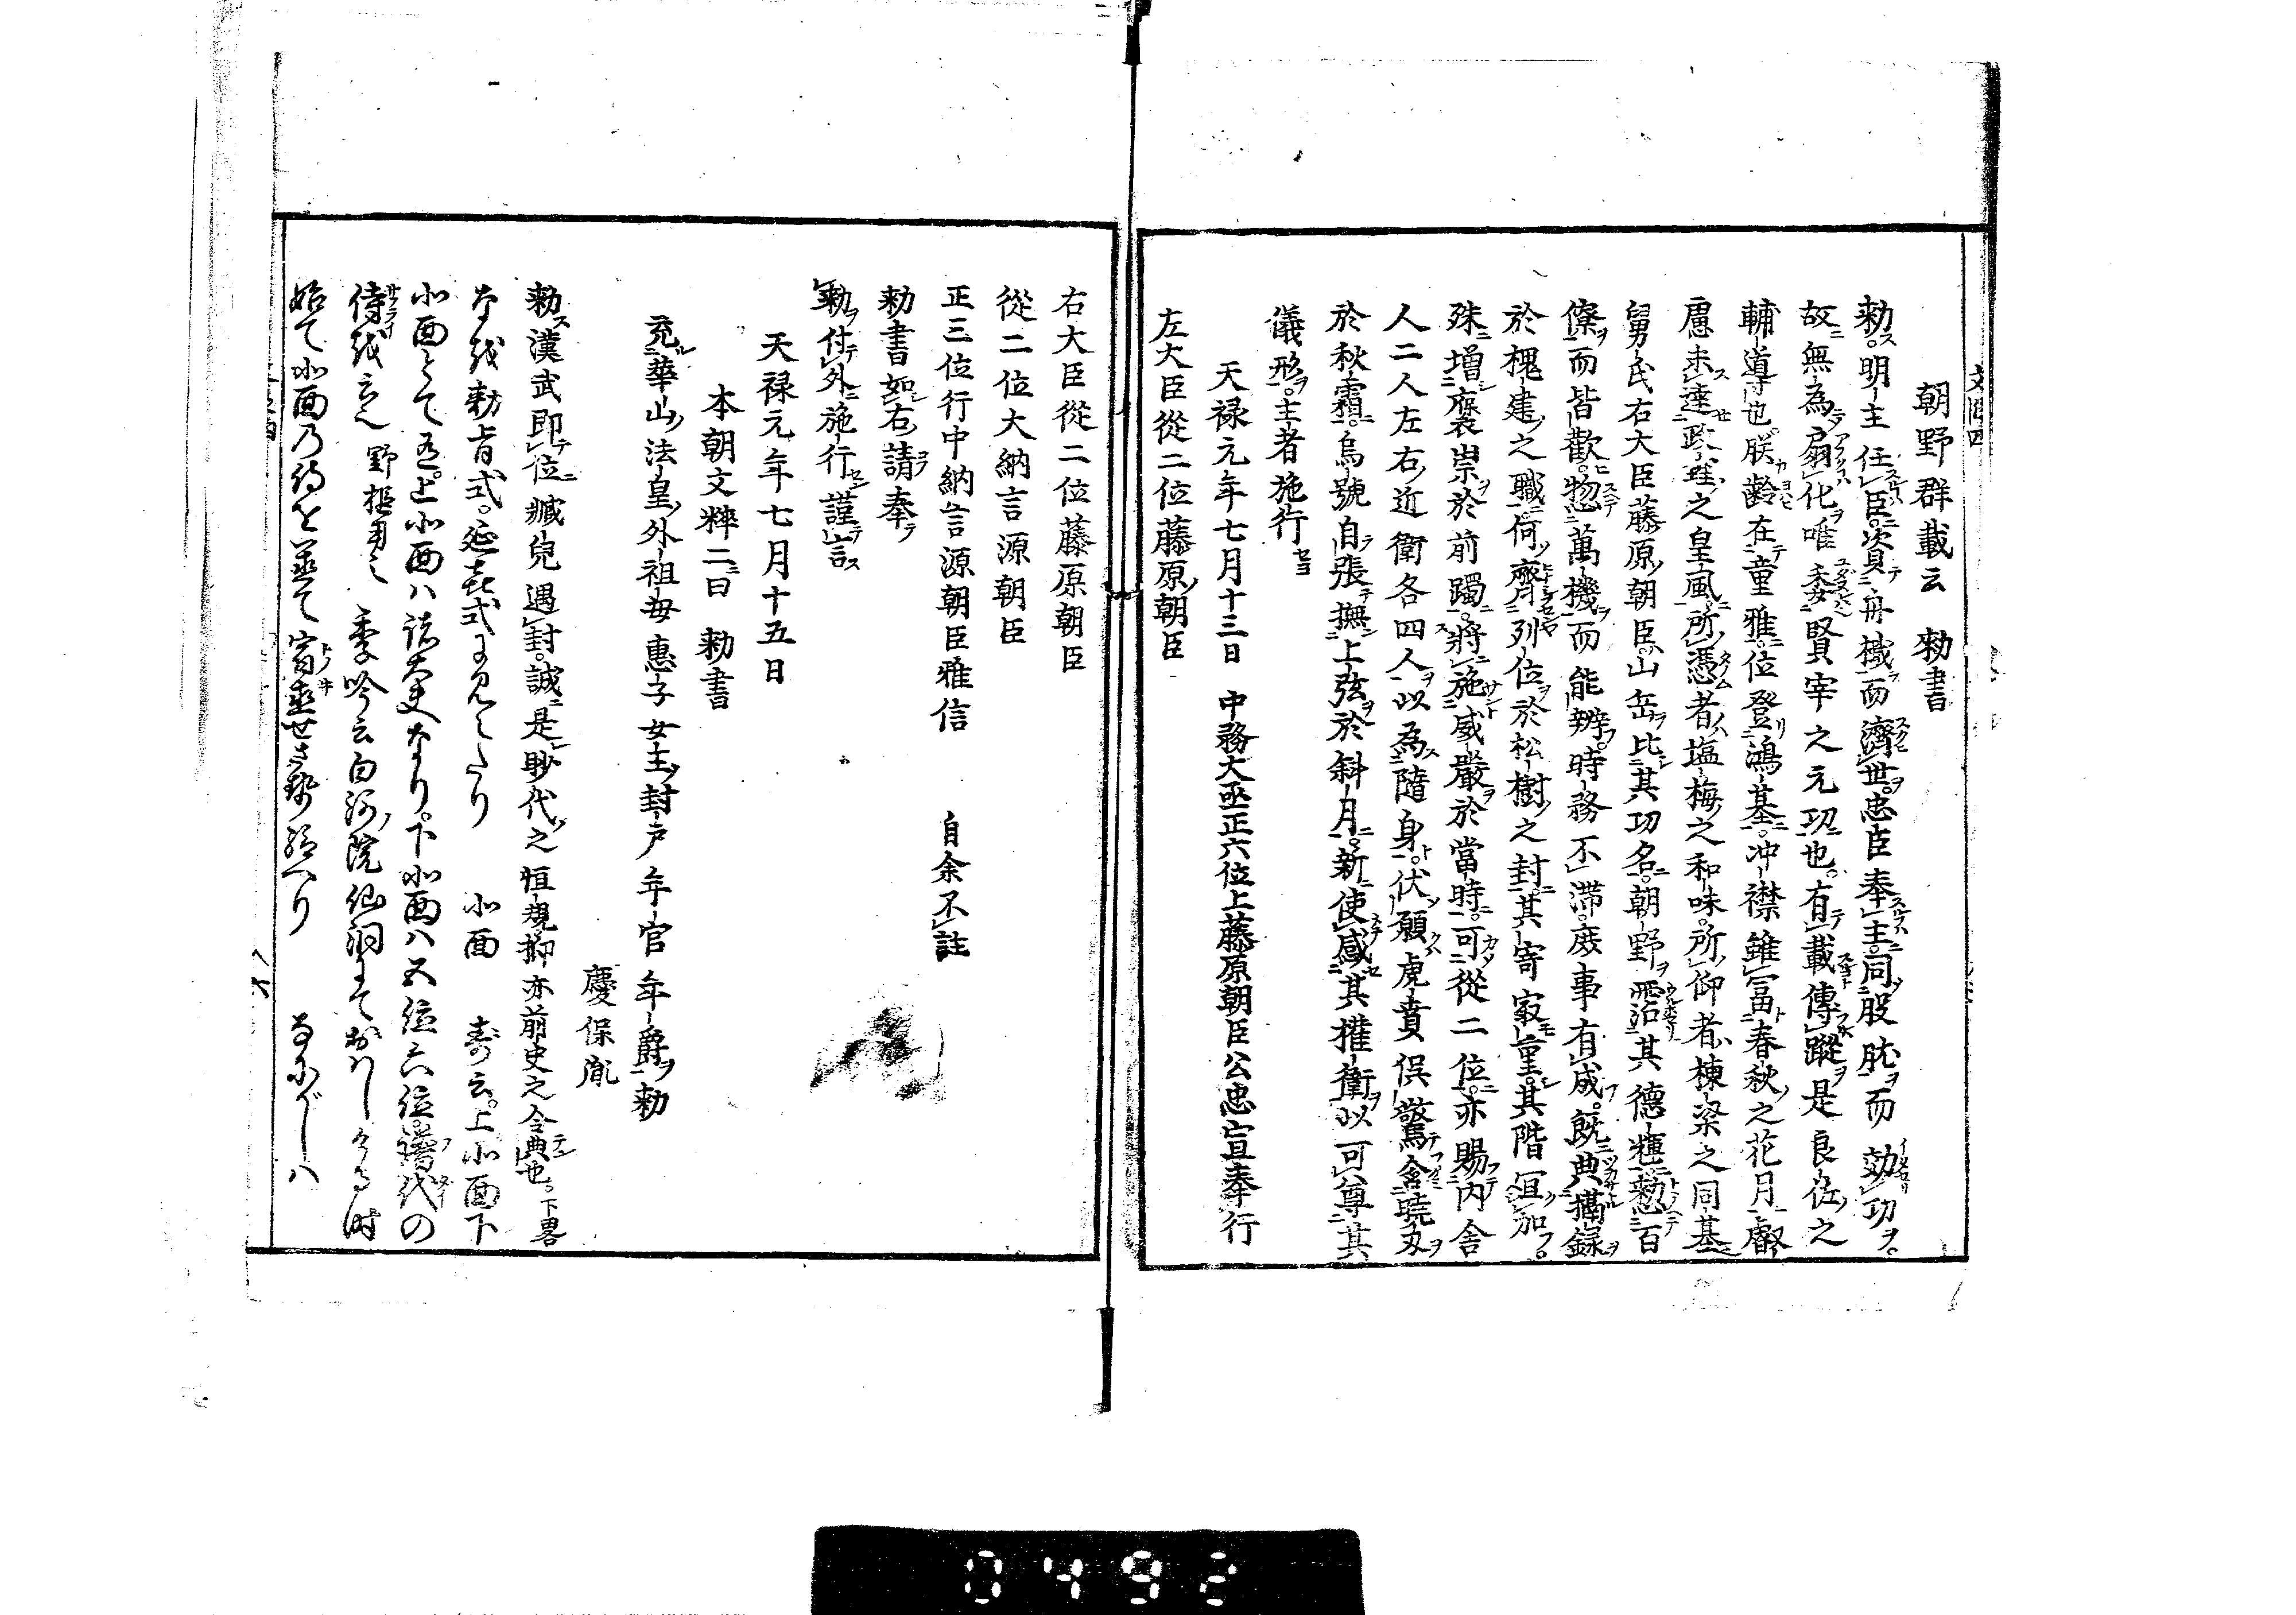 朝野群載云　勅書
勅。明主任臣。資舟檝而濟世。忠臣奉主。同股肱而効功。
故無為扇化唯委賢宰之元功也。有載傳蹤是良佐之
輔道也。朕齡在童雅。位登鴻基。冲襟雖富春秋之花月。叡
慮未達政理之皇風。所憑者塩梅之和味。所仰者棟梁之同基
舅氏右大臣藤原朝臣。山岳比其功名。朝野霑其德。百
僚而皆歡。惣萬機而能辨。時務不滞。庶事有成。既典攝録
於槐棘之職。何齊列位於松樹之封。其寄寂重。其階宜加。
殊増襃崇於前躅。將施威嚴於當時。可從二位。亦賜内舍
人二人左右近衛各四人以為隨身。伏願虎賁俱驚含暁刄
於秋霜。烏號自張撫上弦於斜月。新使感其權衛以可尊其
儀形。主者施行
天禄元年七月十三日　中務大丞正六位上藤原朝臣公忠宣奉行
左大臣從二位藤原朝臣
右大臣從二位藤原朝臣
從二位大納言源朝臣
正三位行中納言源朝臣雅信　自余不註
勅書如右請奉
勅付外施行謹言
天禄元年七月十五日
本朝文粹二曰　勅書
充華山法皇外祖母惠子女王封戸年官年爵勅
慶保胤
勅漢武即位臧兒遇封。誠是眇代之恒規抑亦前史之令典也。下畧
なを勅旨式。延喜式に見えたり　北面　壽云。上北面下
北面とて有。上北面ハ諸大夫なり。下北面ハ五位六位。譜代の
侍を云へ　野槌　季吟云白河院仙洞にておハしける時
始て北面の侍を置て宿直せさせ給へり　なにがしハ